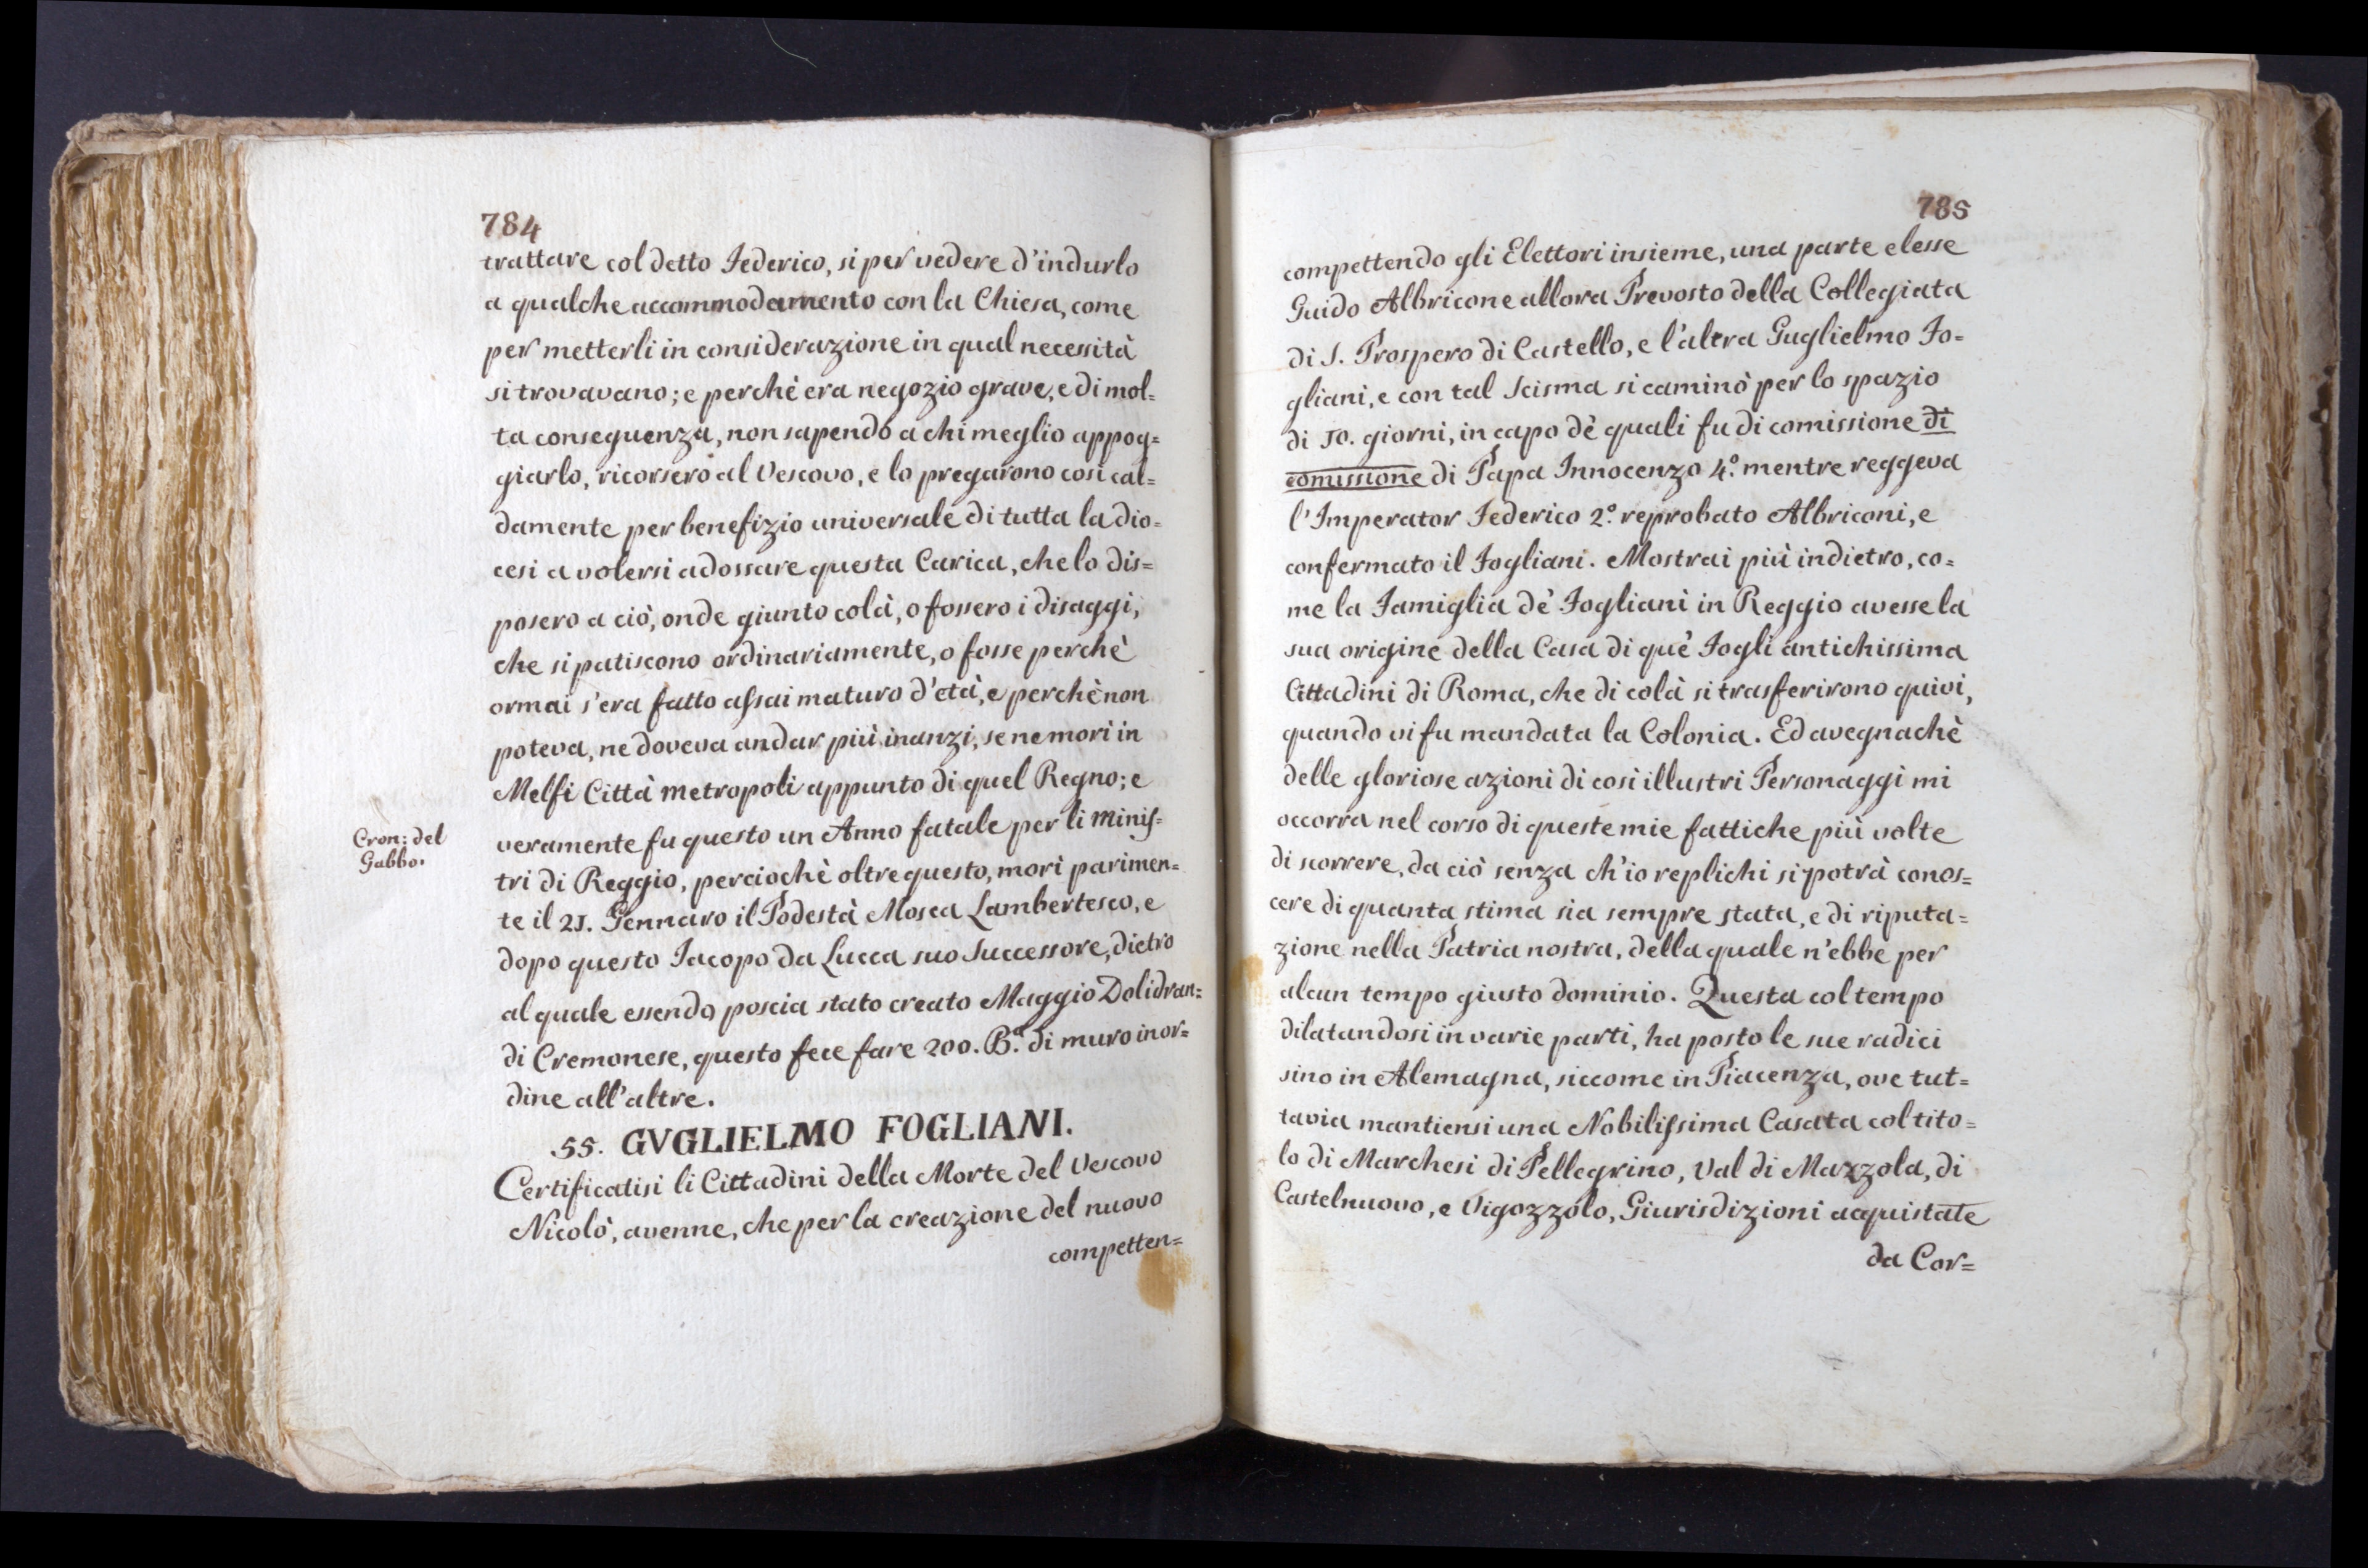 784
trattare col detto Federico, si per vedere d'indurlo
a qualche accommodamento con la Chiesa, come
per metterli in considerazione in qual necessità
si trovavano; e perchè era negozio grave, e di mol=
ta conseguenza, non sapendo a chi meglio appog=
giarlo, ricorsero al Vescovo, e lo pregarono così cal=
damente per benefizio universale di tutta la dio=
cesi a volersi adossare questa Carica, che lo dis=
posero a ciò, onde giunto colà, o fossero i disaggi,
che si patiscono ordinariamente, o fosse perchè
ormai s'era fatto assai maturo d'età, e perchè non
poteva, ne doveva andar più inanzi, se ne morì in
Melfi Città metropoli appunto di quel Regno; e
Cron: del
Gabbo.
veramente fu questo un Anno fatale per li Minis=
tri di Reggio, perciochè oltre questo, morì parimen=
te il 21. Gennaro il Podestà Mosca Lambertesco, e
dopo questo Iacopo da Lucca suo Successore, dietro
al quale essendo poscia stato creato Maggio Dolidran=
di Cremonese, questo fece fare 200. B.ª di muro in or=
dine all'altre.
55. GVGLIELMO FOGLIANI.
Certificatisi li Cittadini della Morte del Vescovo
Nicolò, avenne, che per la creazione del nuovo
competten=
785
compettendo gli Elettori insieme, una parte elesse
Guido Albricone allora Prevosto della Collegiata
di S. Prospero di Castello, e l'altra Guglielmo Fo=
gliani, e con tal Scisma si caminò per lo spazio
di 10. giorni, in capo dè quali fu di comissione di
comissione di Papa Innocenzo 4.º mentre reggeva
l'Imperator Federico 2.º reprobato Albriconi, e
confermato il Fogliani. Mostrai più indietro, co=
me la Famiglia dè Fogliani in Reggio avesse la
sua origine della Casa di què Fogli antichissima
Cittadini di Roma, che di colà si trasferirono quivi,
quando vi fu mandata la Colonia. Ed avegnachè
delle gloriose azioni di così illustri Personaggi mi
occorra nel corso di queste mie fattiche più volte
di scorrere, da ciò senza ch'io replichi si potrà conos=
cere di quanta stima sia sempre stata, e di riputa=
zione nella Patria nostra, della quale n'ebbe per
alcun tempo giusto dominio. Questa col tempo
dilatandosi in varie parti, ha posto le sue radici
sino in Alemagna, siccome in Piacenza, ove tut=
tavia mantiensi una Nobilissima Casata col tito=
lo di Marchesi di Pellegrino, Val di Mazzola, di
Castelnuovo, e Vigozzolo, Giurisdizioni acquistate
da Cor=